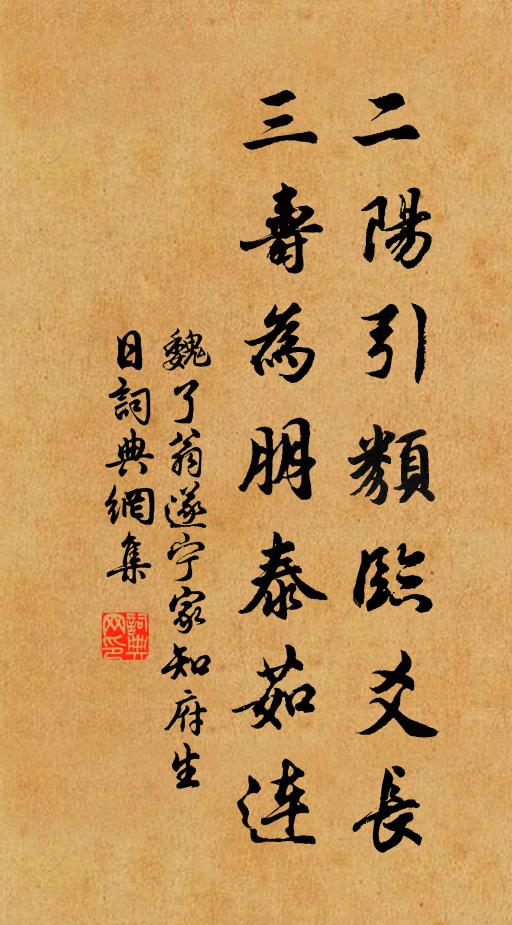 二陽引類臨爻長
三壽為朋泰茹連
魏了翁遂宁家知府生
日詞典網集
詞典
网印